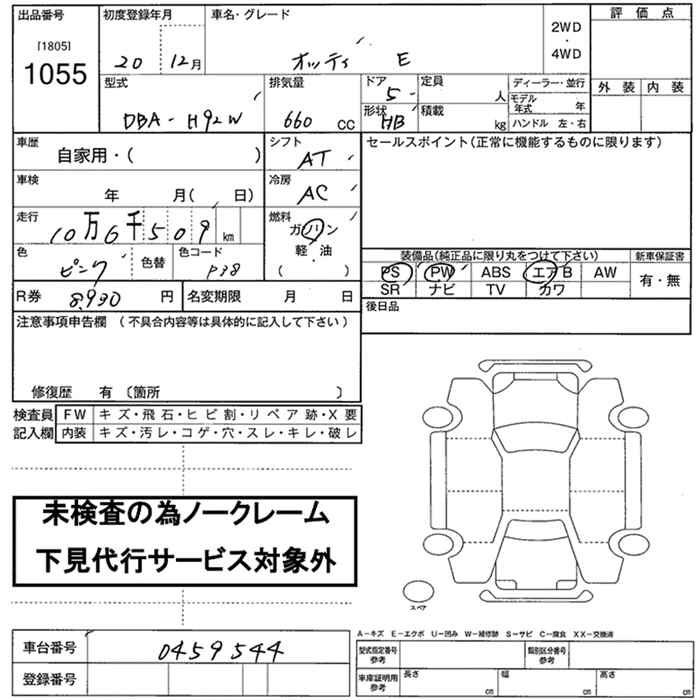 出品番号 初度登録年月 車名・グレード 評価点
[1805]
1055
20年 12月 オッティ E 2WD・4WD
型式 排気量 ドア 定員 ディーラー・並行 外装 内装
DBA-H92W 660 CC 5 人 モデル年式 年
形状 HB 積載 kg ハンドル 左・右
車歴 自家用・( ) シフト AT セールスポイント(正常に機能するものに限ります)
車検 年 月( 日) 冷房 AC
走行 10万6千509km 燃料 ガソリン
軽・油
( )
色 ピンク 色替 色コード P38
装備品(純正品に限り丸をつけて下さい) 新車保証書
PS PW ABS エアB AW 有・無
SR ナビ TV カワ
R券 8,930 円 名変期限 月 日
後日品
注意事項申告欄 (不具合内容等は具体的に記入して下さい)
修復歴 有 〔箇所 〕
検査員 FW キズ・飛石・ヒビ割・リペア跡・X要
記入欄 内装 キズ・汚レ・コゲ・穴・スレ・キレ・破レ
未検査の為ノークレーム
下見代行サービス対象外
スペア
車台番号 0459544
登録番号
A-キズ E-エクボ U-凹み W-補修跡 S-サビ C-腐食 XX-交換済
型式指定番号 参考 類別区分番号 参考
車庫証明用 参考 長さ cm 幅 cm 高さ cm